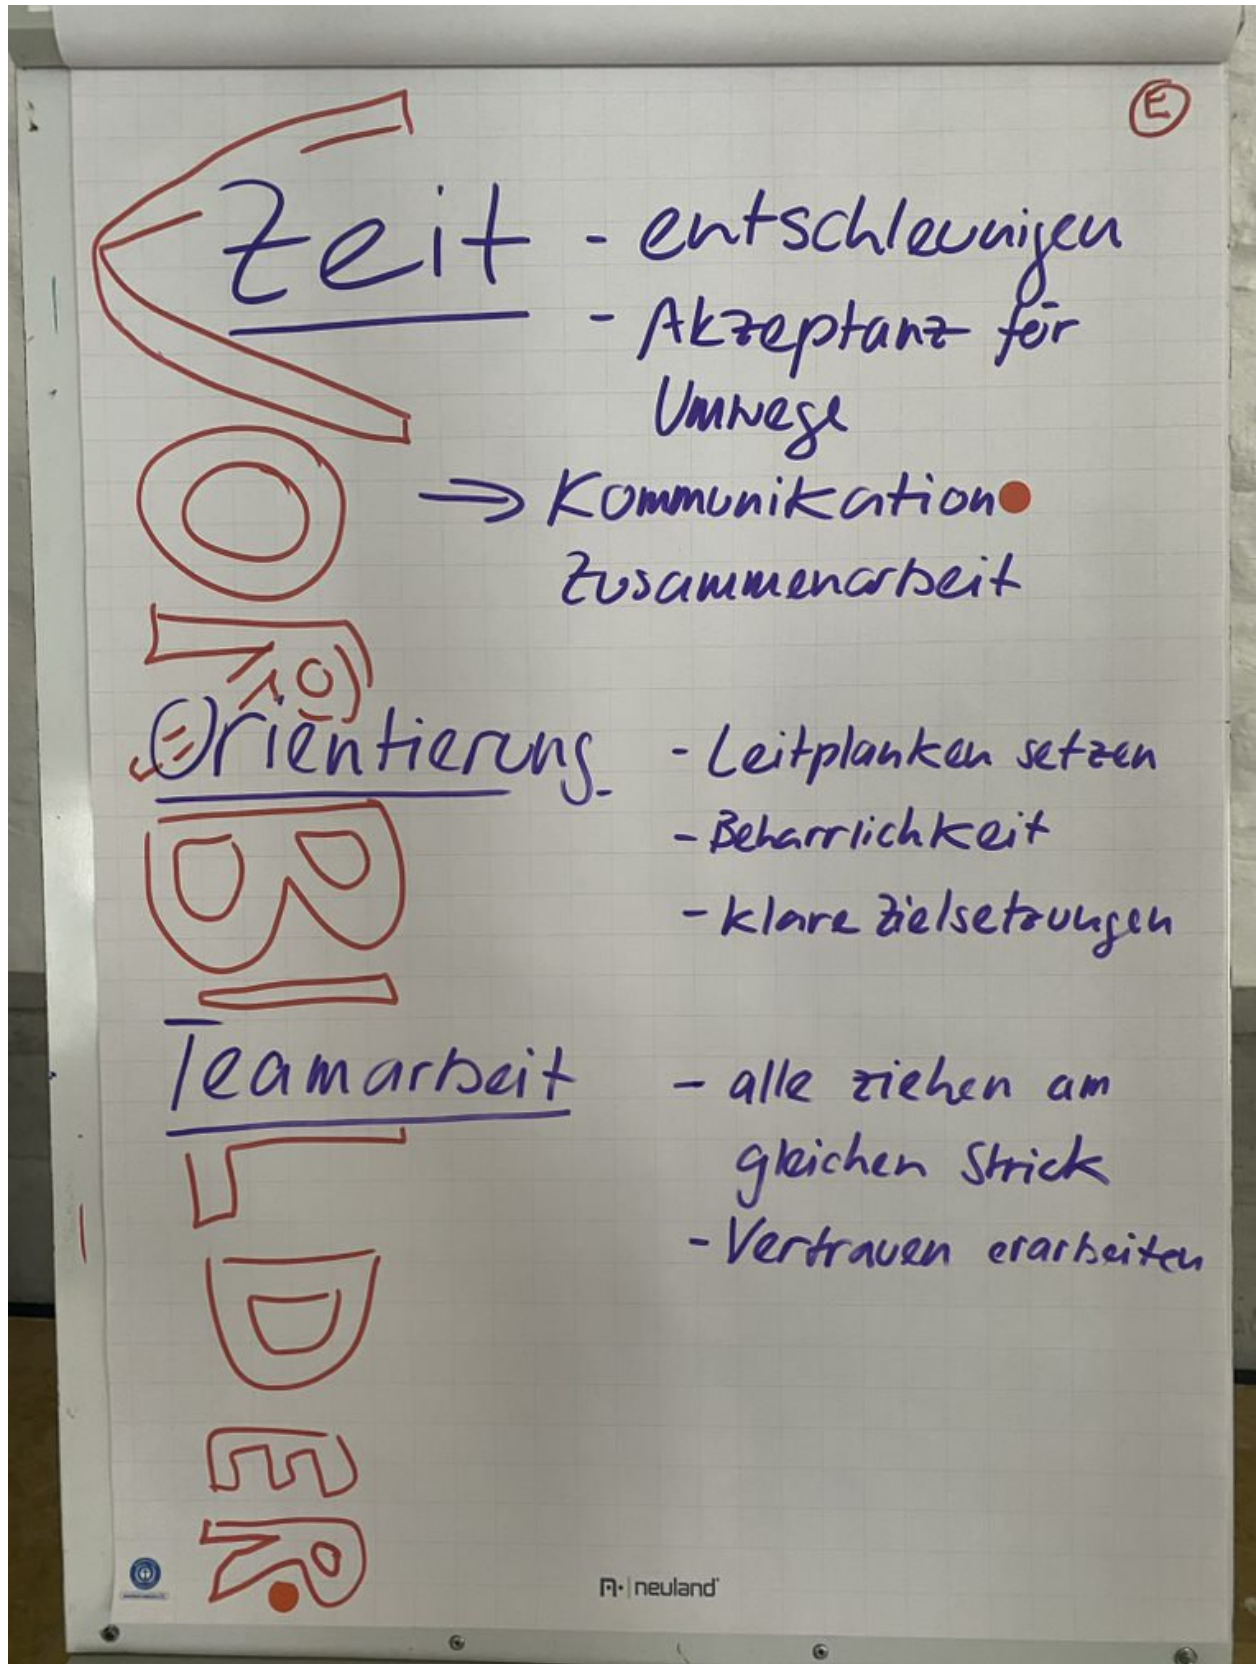 E
Zeit - entschleunigen
- Akzeptanz für
Umwege
⇒ Kommunikation
Zusammenarbeit
Orientierung - Leitplanken setzen
- Beharrlichkeit
- klare Zielsetzungen
Teamarbeit - alle ziehen am
gleichen Strick
- Vertrauen erarbeiten
VORBILDER
neuland